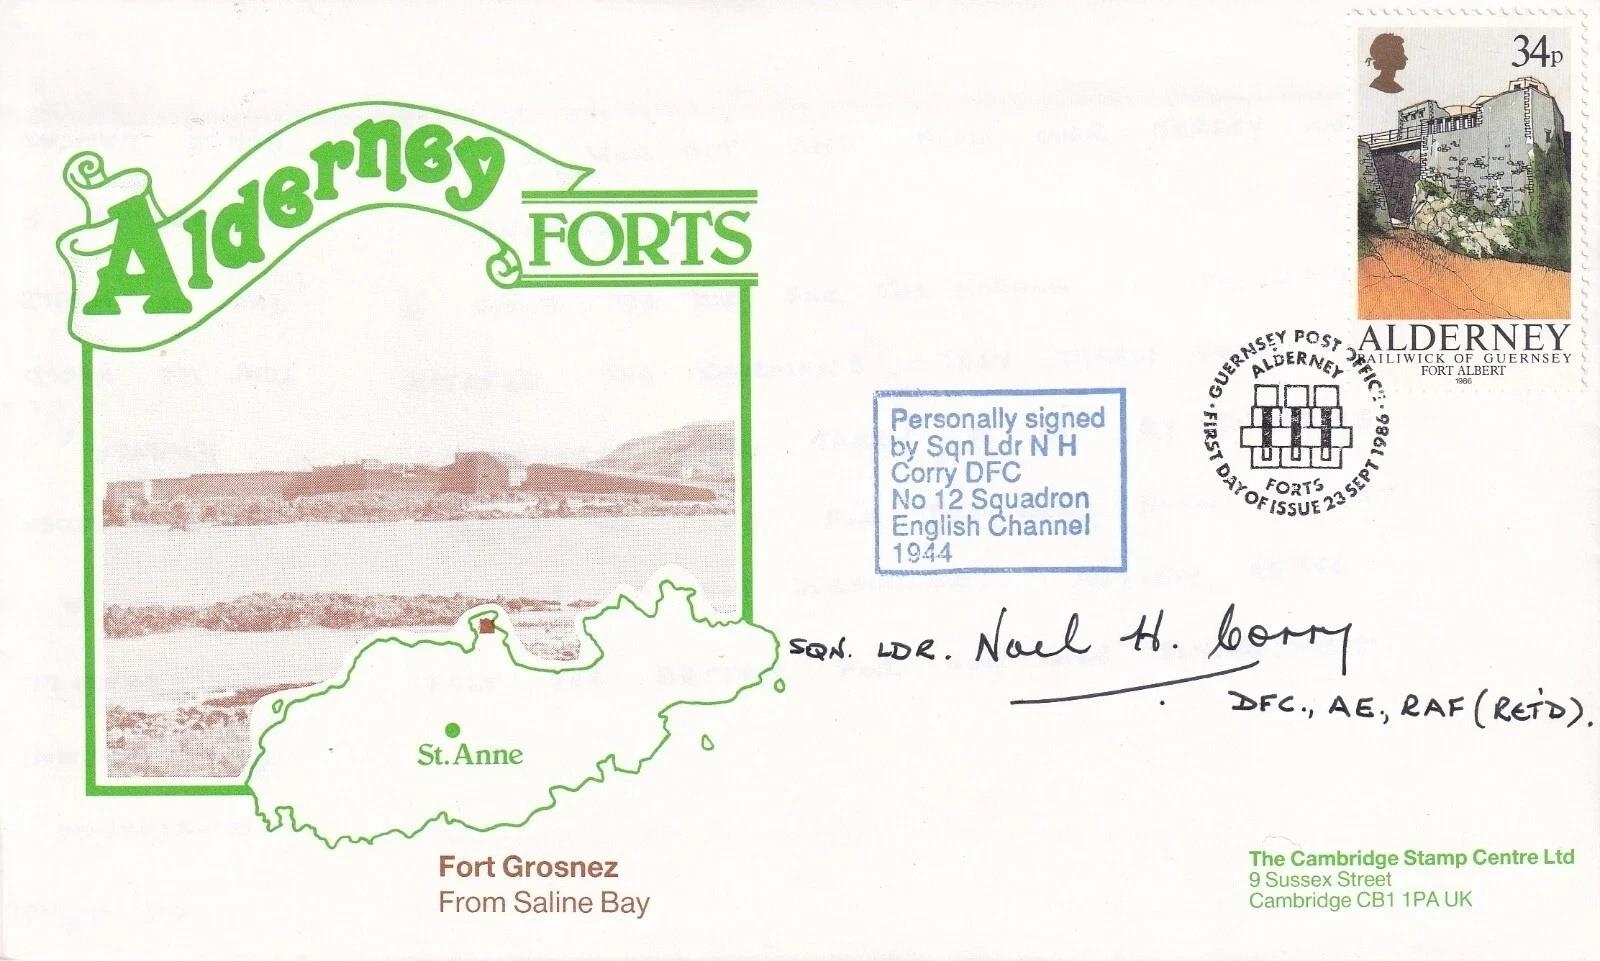 Alderney
FORTS
34p
ALDERNEY
BAILIWICK OF GUERNSEY
FORT ALBERT
1986
· GUERNSEY POST OFFICE ·
ALDERNEY
FORTS
FIRST DAY OF ISSUE 23 SEPT 1986
Personally signed
by Sqn Ldr N H
Corry DFC
No 12 Squadron
English Channel
1944
SQN. LDR. Noel H. Corry
DFC., AE., RAF (RET'D).
St. Anne
Fort Grosnez
From Saline Bay
The Cambridge Stamp Centre Ltd
9 Sussex Street
Cambridge CB1 1PA UK